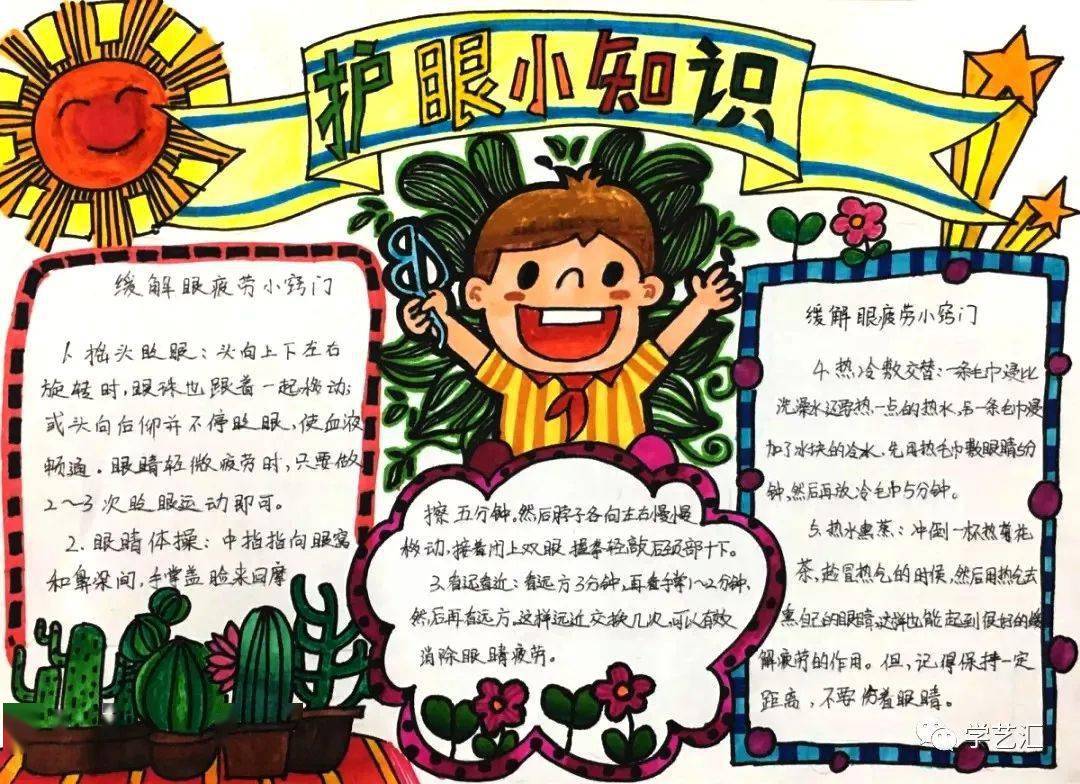 护眼小知识
缓解眼疲劳小窍门
1.摇头眨眼:头向上下左右
旋转时,眼珠也跟着一起移动;
或头向后仰并不停眨眼,使血液
畅通。眼睛轻微疲劳时,只要做
2~3次眨眼运动即可。
2.眼睛体操:中指指向眼窝
和鼻梁间,手掌盖脸来回摩
擦五分钟。然后脖子各向左右慢慢
移动,接着闭上双眼,握拳轻敲后颈部十下。
3.看远看近:看远方3分钟,再看手掌1~2分钟,
然后再看远方。这样远近交换几次,可以有效
消除眼睛疲劳。
缓解眼疲劳小窍门
4.热冷敷交替:一条毛巾浸比
洗澡水还要热一点的热水,另一条毛巾浸
加了冰块的冷水,先用热毛巾敷眼睛5分
钟,然后再放冷毛巾5分钟。
5.热水熏蒸:冲倒一杯热菊花
茶,趁冒热气的时候,然后用热气去
熏自己的眼睛,这样也能起到很好的缓
解疲劳的作用。但,记得保持一定
距离,不要伤着眼睛。
学艺汇